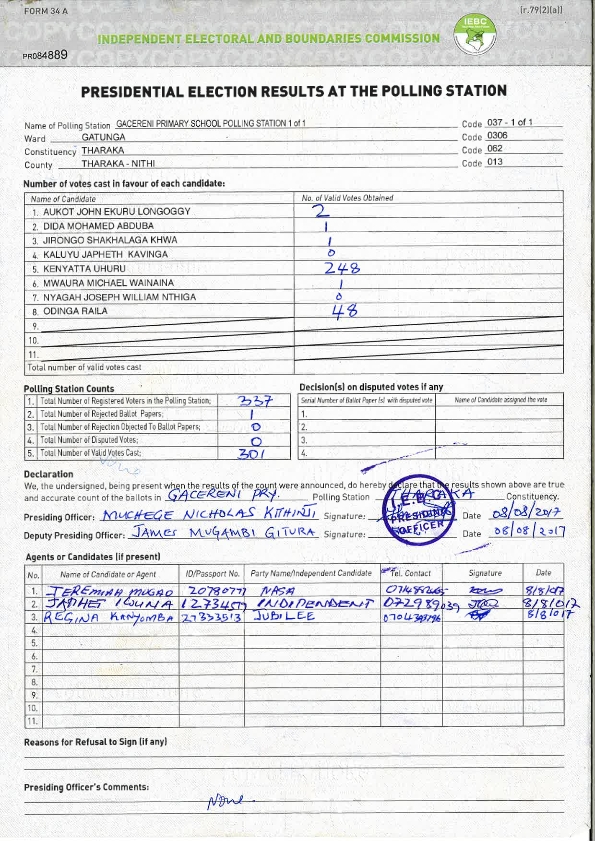 FORM 34 A
[r.79(2)(a)]
INDEPENDENT ELECTORAL AND BOUNDARIES COMMISSION
IEBC
PR084889
PRESIDENTIAL ELECTION RESULTS AT THE POLLING STATION
Name of Polling Station GACERENI PRIMARY SCHOOL POLLING STATION 1 of 1 Code 037 - 1 of 1
Ward GATUNGA Code 0306
Constituency THARAKA Code 062
County THARAKA - NITHI Code 013
Number of votes cast in favour of each candidate:
Name of Candidate No. of Valid Votes Obtained
1. AUKOT JOHN EKURU LONGOGGY 2
2. DIDA MOHAMED ABDUBA 1
3. JIRONGO SHAKHALAGA KHWA 1
4. KALUYU JAPHETH KAVINGA 0
5. KENYATTA UHURU 248
6. MWAURA MICHAEL WAINAINA 1
7. NYAGAH JOSEPH WILLIAM NTHIGA 0
8. ODINGA RAILA 48
9.
10.
11.
Total number of valid votes cast
Polling Station Counts
1. Total Number of Registered Voters in the Polling Station; 337
2. Total Number of Rejected Ballot Papers; 1
3. Total Number of Rejection Objected To Ballot Papers; 0
4. Total Number of Disputed Votes; 0
5. Total Number of Valid Votes Cast; 301
Decision(s) on disputed votes if any
Serial Number of Ballot Paper (s) with disputed vote Name of Candidate assigned the vote
1.
2.
3.
4.
None
Declaration
We, the undersigned, being present when the results of the count were announced, do hereby declare that the results shown above are true
and accurate count of the ballots in GACERENI PRY. Polling Station THARAKA Constituency.
Presiding Officer: MUCHEGE NICHOLAS KITHINJI Signature: Date 08/08/2017
Deputy Presiding Officer: JAMES MUGAMBI GITURA Signature: Date 08/08/2017
I.E.B.C
PRESIDING
OFFICER
Agents or Candidates (if present)
No. Name of Candidate or Agent ID/Passport No. Party Name/Independent Candidate Tel. Contact Signature Date
1. JEREMIAH 20780771 NASA 8/8/017
2. INDIPENDENT 8/8/017
3. REGINA KANYOMBA 27353513 JUBILEE 8/8/017
4.
5.
6.
7.
8.
9.
10.
11.
Reasons for Refusal to Sign (if any)
Presiding Officer's Comments:
None